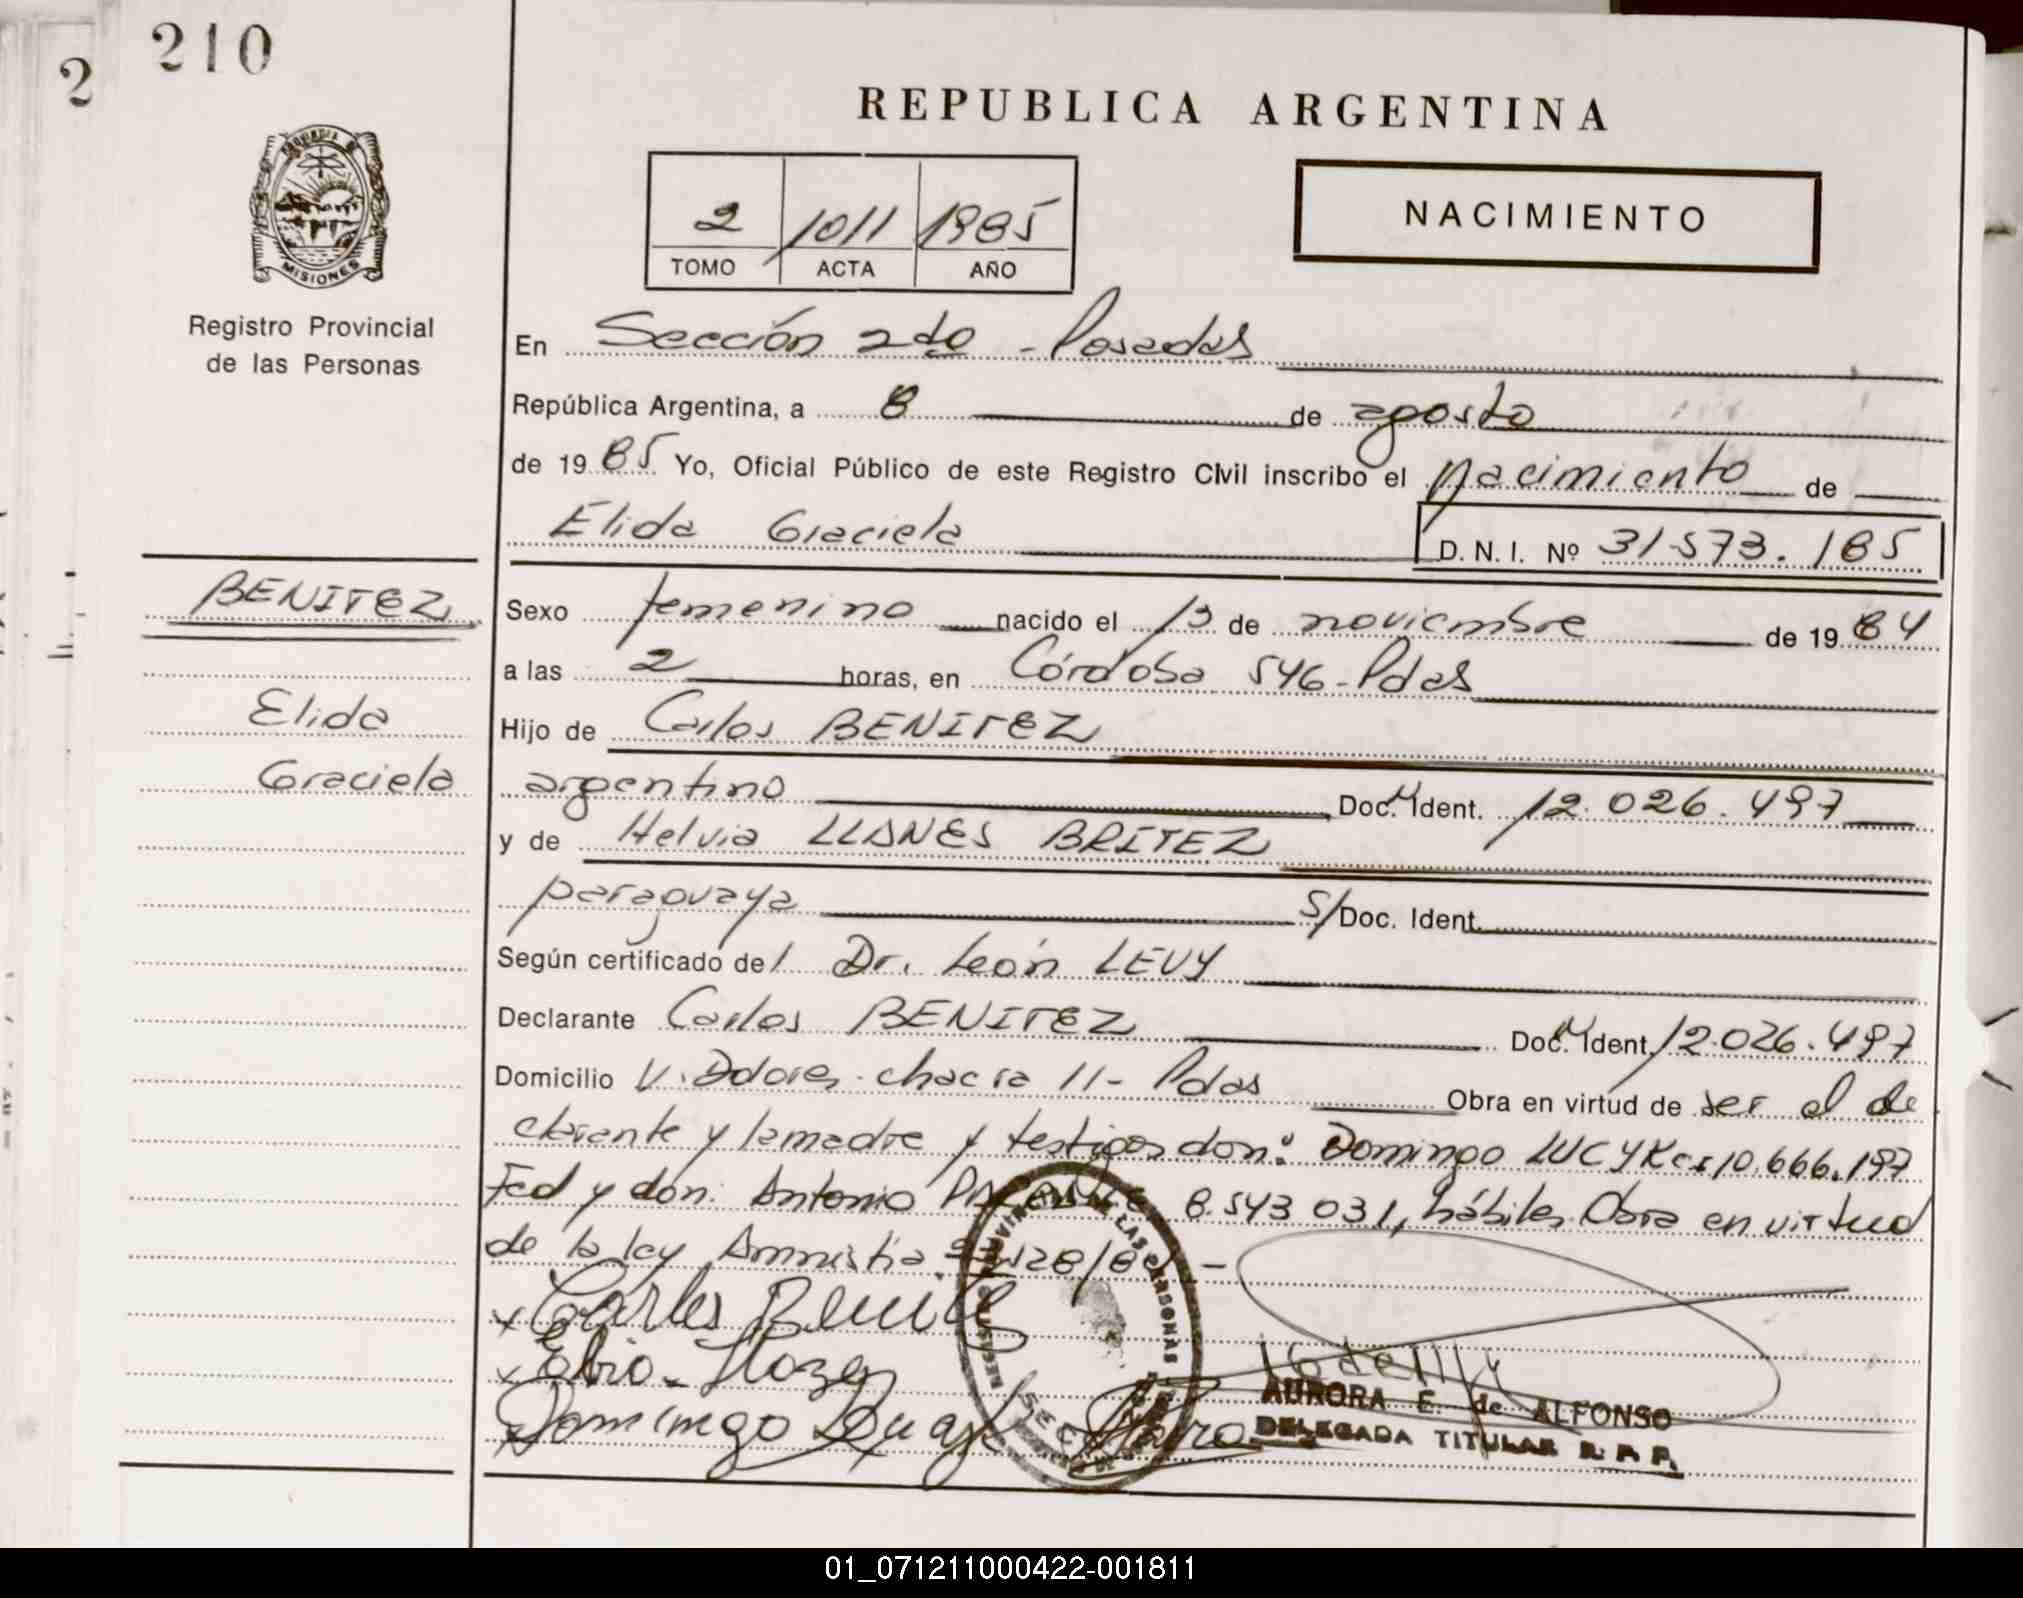 210
2
PROVINCIA DE
MISIONES
Registro Provincial
de las Personas
BENITEZ
Elida
Graciela
REPUBLICA ARGENTINA
2 1011 1985
TOMO ACTA AÑO
NACIMIENTO
En Sección 2do - Posadas
República Argentina, a 8 de agosto
de 1985 Yo, Oficial Público de este Registro Civil inscribo el nacimiento de
Elida Graciela D. N. I. Nº 31.573.185
Sexo femenino nacido el 13 de noviembre de 1984
a las 2 horas, en Córdoba 546 - Pdas
Hijo de Carlos BENITEZ
argentino Doc. Ident. 12.026.497
y de Helvia LLANES BRITEZ
paraguaya S/Doc. Ident.
Según certificado del Dr. León LEVY
Declarante Carlos BENITEZ Doc. Ident. 12.026.497
Domicilio V. Dolores - chacra 11 - Pdas Obra en virtud de ser el de
clarante y la madre y testigos don: Domingo 10.666.197
y don: Antonio 8.543.031, hábiles. Obra en virtud
de la ley Amnistia
Carlos Benitez
Domingo
AURORA E. de ALFONSO
DELEGADA TITULAR R. P. P.
01_071211000422-001811